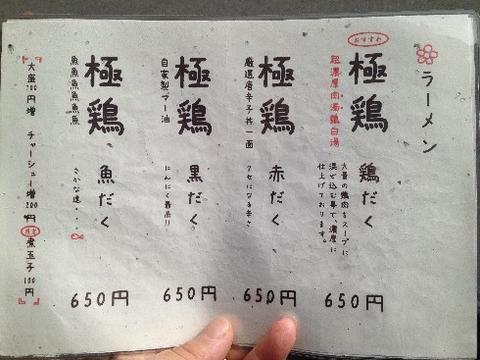 ラーメン
おすすめ
極鶏
超濃厚肉濁鶏白湯
鶏だく
大量の鶏肉をスープに
混ぜ込む事で、濃厚に
仕上げております。
650円
極鶏
厳選唐辛子共一面
赤だく
クセになる辛さ
650円
極鶏
自家製マー油
黒だく
にんにく最高り
650円
極鶏
魚魚魚魚魚魚
魚だく
さかな達・・・
650円
大盛100円増 チャーシュー増200円 煮玉子100円